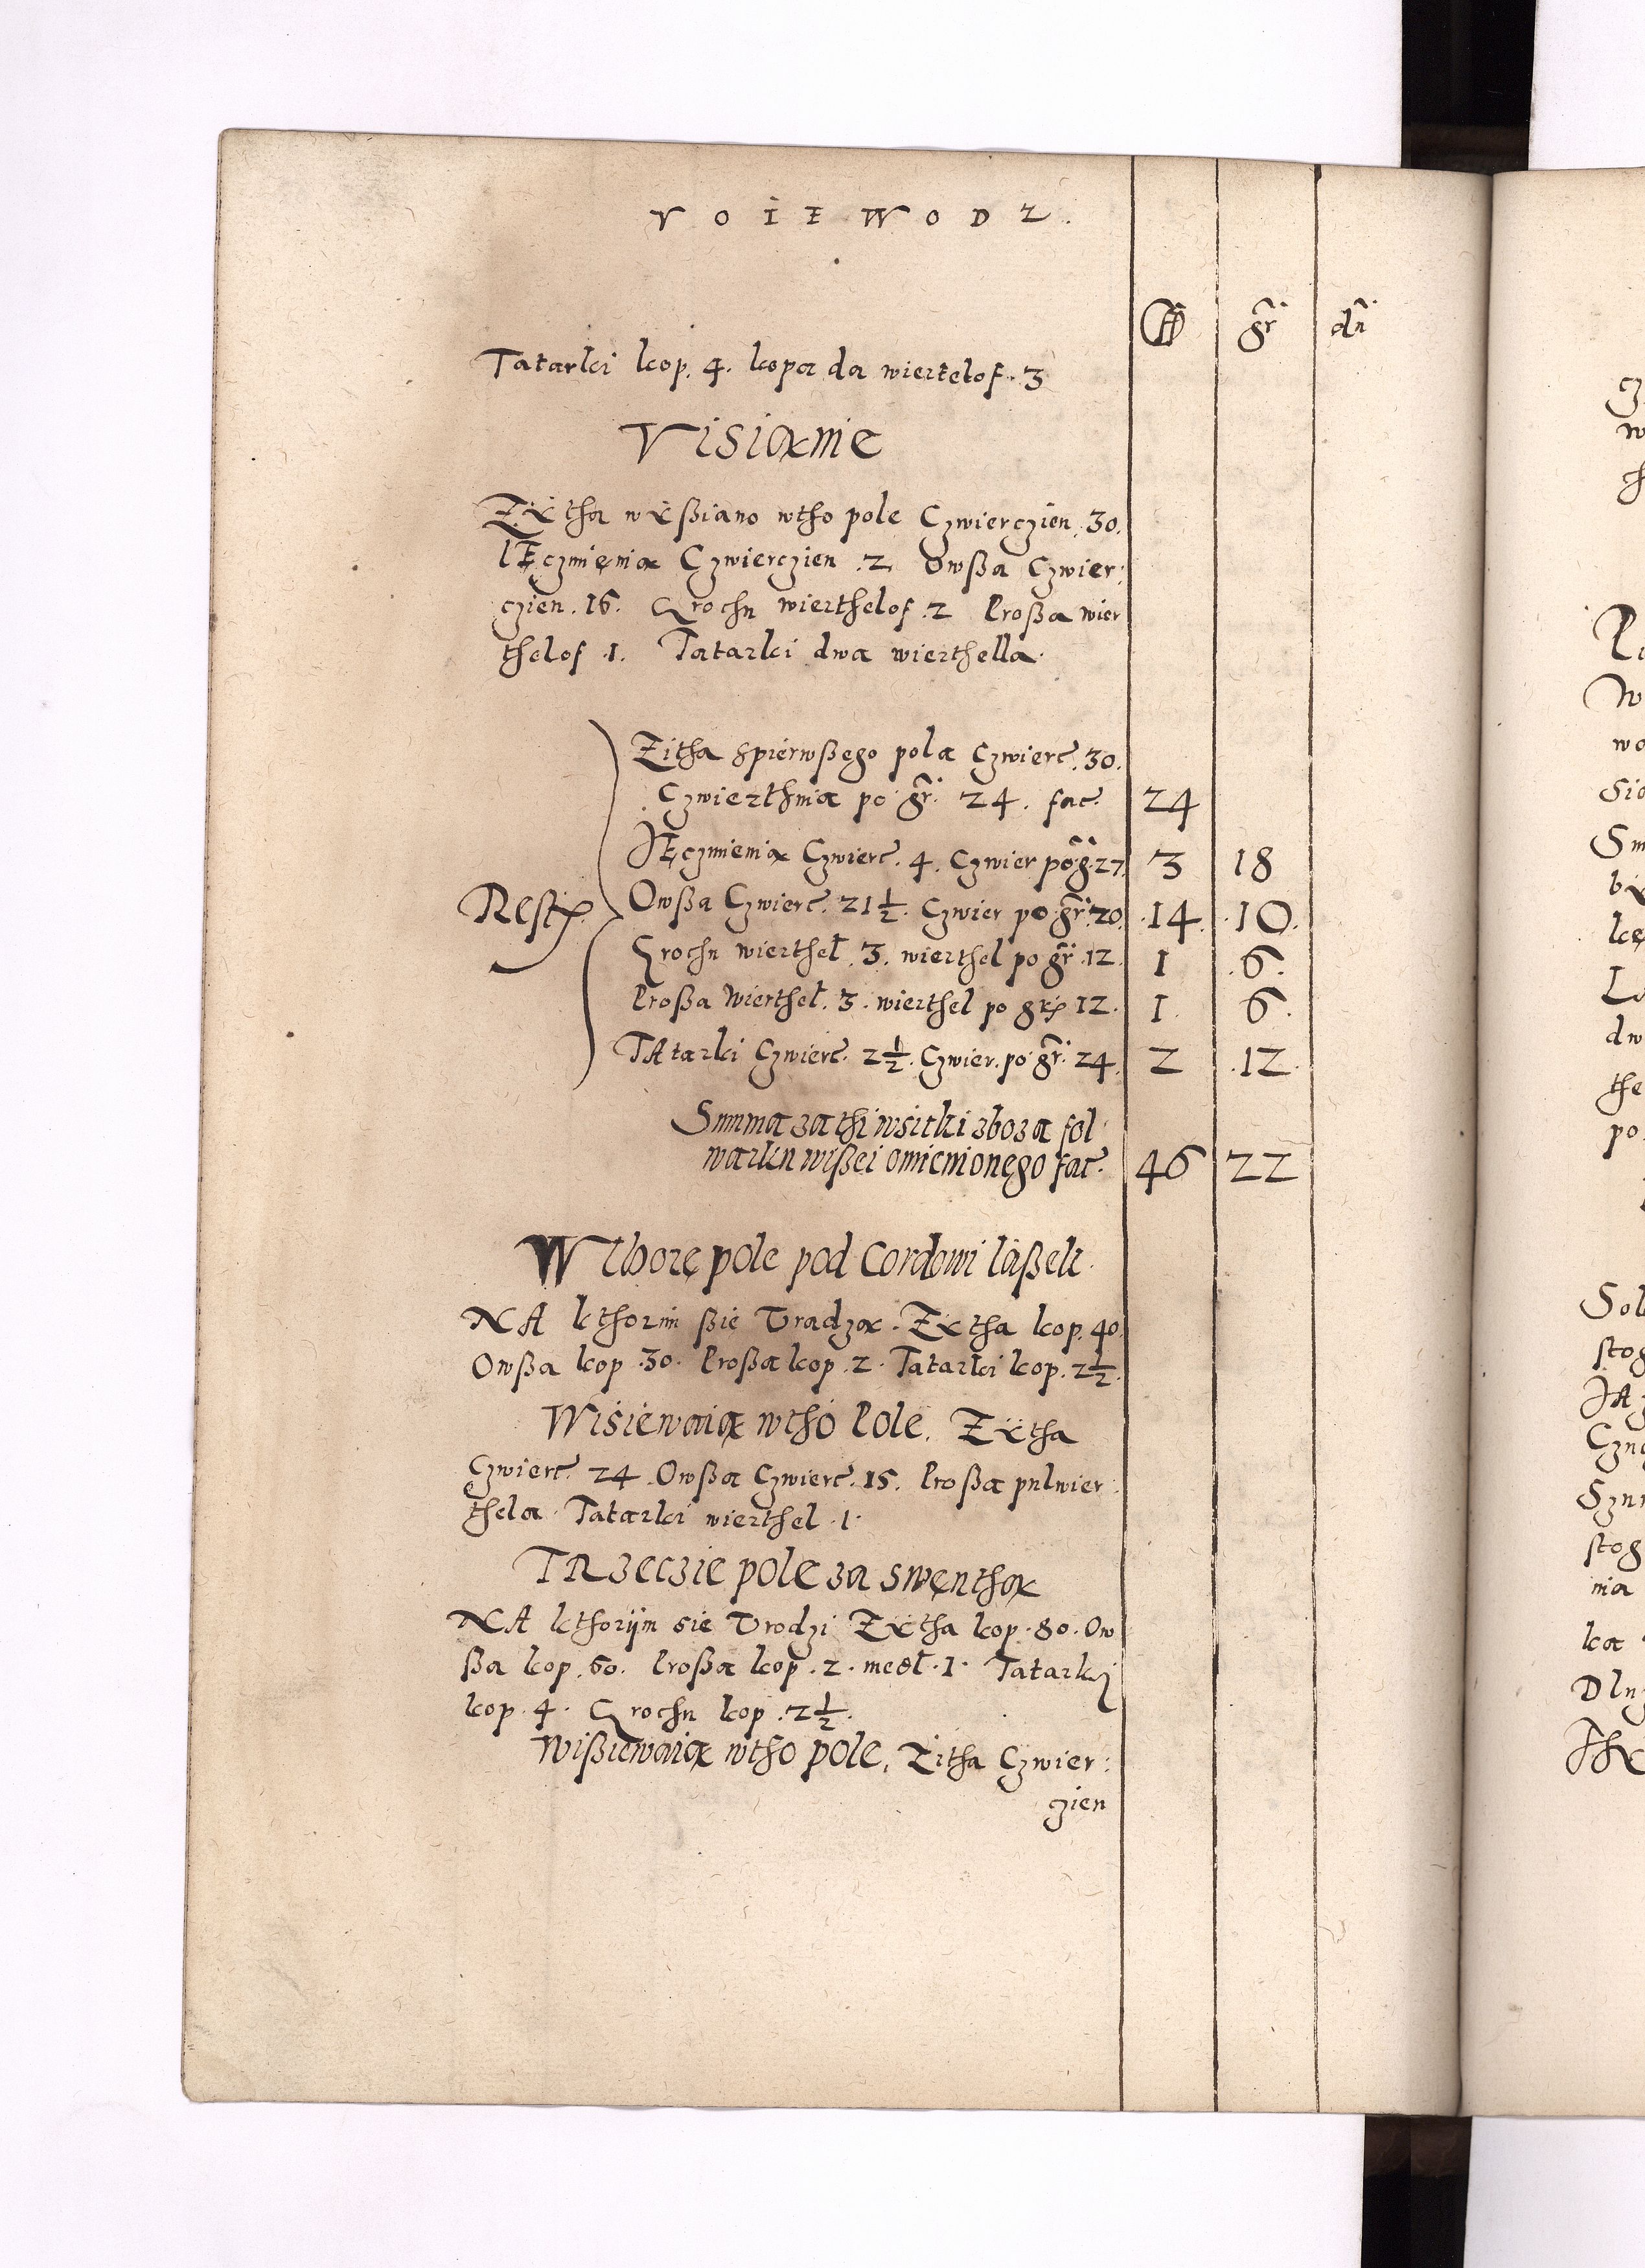 VOIEWODZ.
ff gr dn
Tatarki kop. 4. kopa da wiertelof. 3
Visianie
Zÿtha wÿßiano wtho pole Czwierczien. 30.
IĘczmięnia Czwierczien .2 Owßa Czwier:
czien. 16. Grochu wierthelof .2 Proßa wier
thelof .1. Tatarki dwa wierthella.
Zitha spierwßego pola Czwierc. 30.
Czwierthnia po gr. 24. fac. 24
IĘczmienia Czwierc. 4. Czwier po g. 27. 3 18
Rest. Owßa Czwierc. 21½. Czwier po gr. 20. 14. 10.
Grochu wierthel. 3. wierthel po gr. 12. 1 6.
Proßa Wierthel. 3. wierthel po gr 12. 1. 6.
TAtarki Czwierc. 2½. Czwier. po gr. 24. 2 12.
Summa za thi wsitki zboza fol
warku wißei omienionego fac. 46 22
W Thorę pole pod Cordowi laßek.
NA kthorim ßie Vradza. Zÿtha kop. 40.
Owßa kop. 30. Proßa kop. 2. Tatarki kop. 2½.
Wisiewaia wtho Pole. Zÿtha
Czwierc. 24. Owßa Czwierc. 15. Proßa pulwier:
thela. Tatarki wierthel .1.
TRzeczie pole za swęntha
NA kthorijm sie Vrodzi Zÿtha kop. 80. Ow
ßa kop. 60. Proßa kop. 2. medl. 1. Tatarki
kop. 4. Grochu kop. 2½.
Wißiewaia wtho pole. Zitha Czwier:
czien